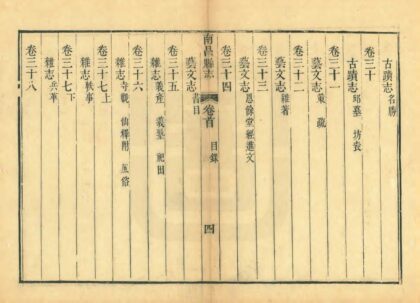 古蹟志名勝
卷三十
古蹟志邱墓 坊表
卷三十一
藝文志奏 疏
卷三十二
藝文志雜著
卷三十三
藝文志恩餘堂經進文
卷三十四
南昌縣志 卷首 目錄 四
藝文志書目
卷三十五
雜志義產 義塾 祀田
卷三十六
雜志寺觀 仙釋附 風俗
卷三十七上
雜志軼事
卷三十七下
雜志兵革
卷三十八